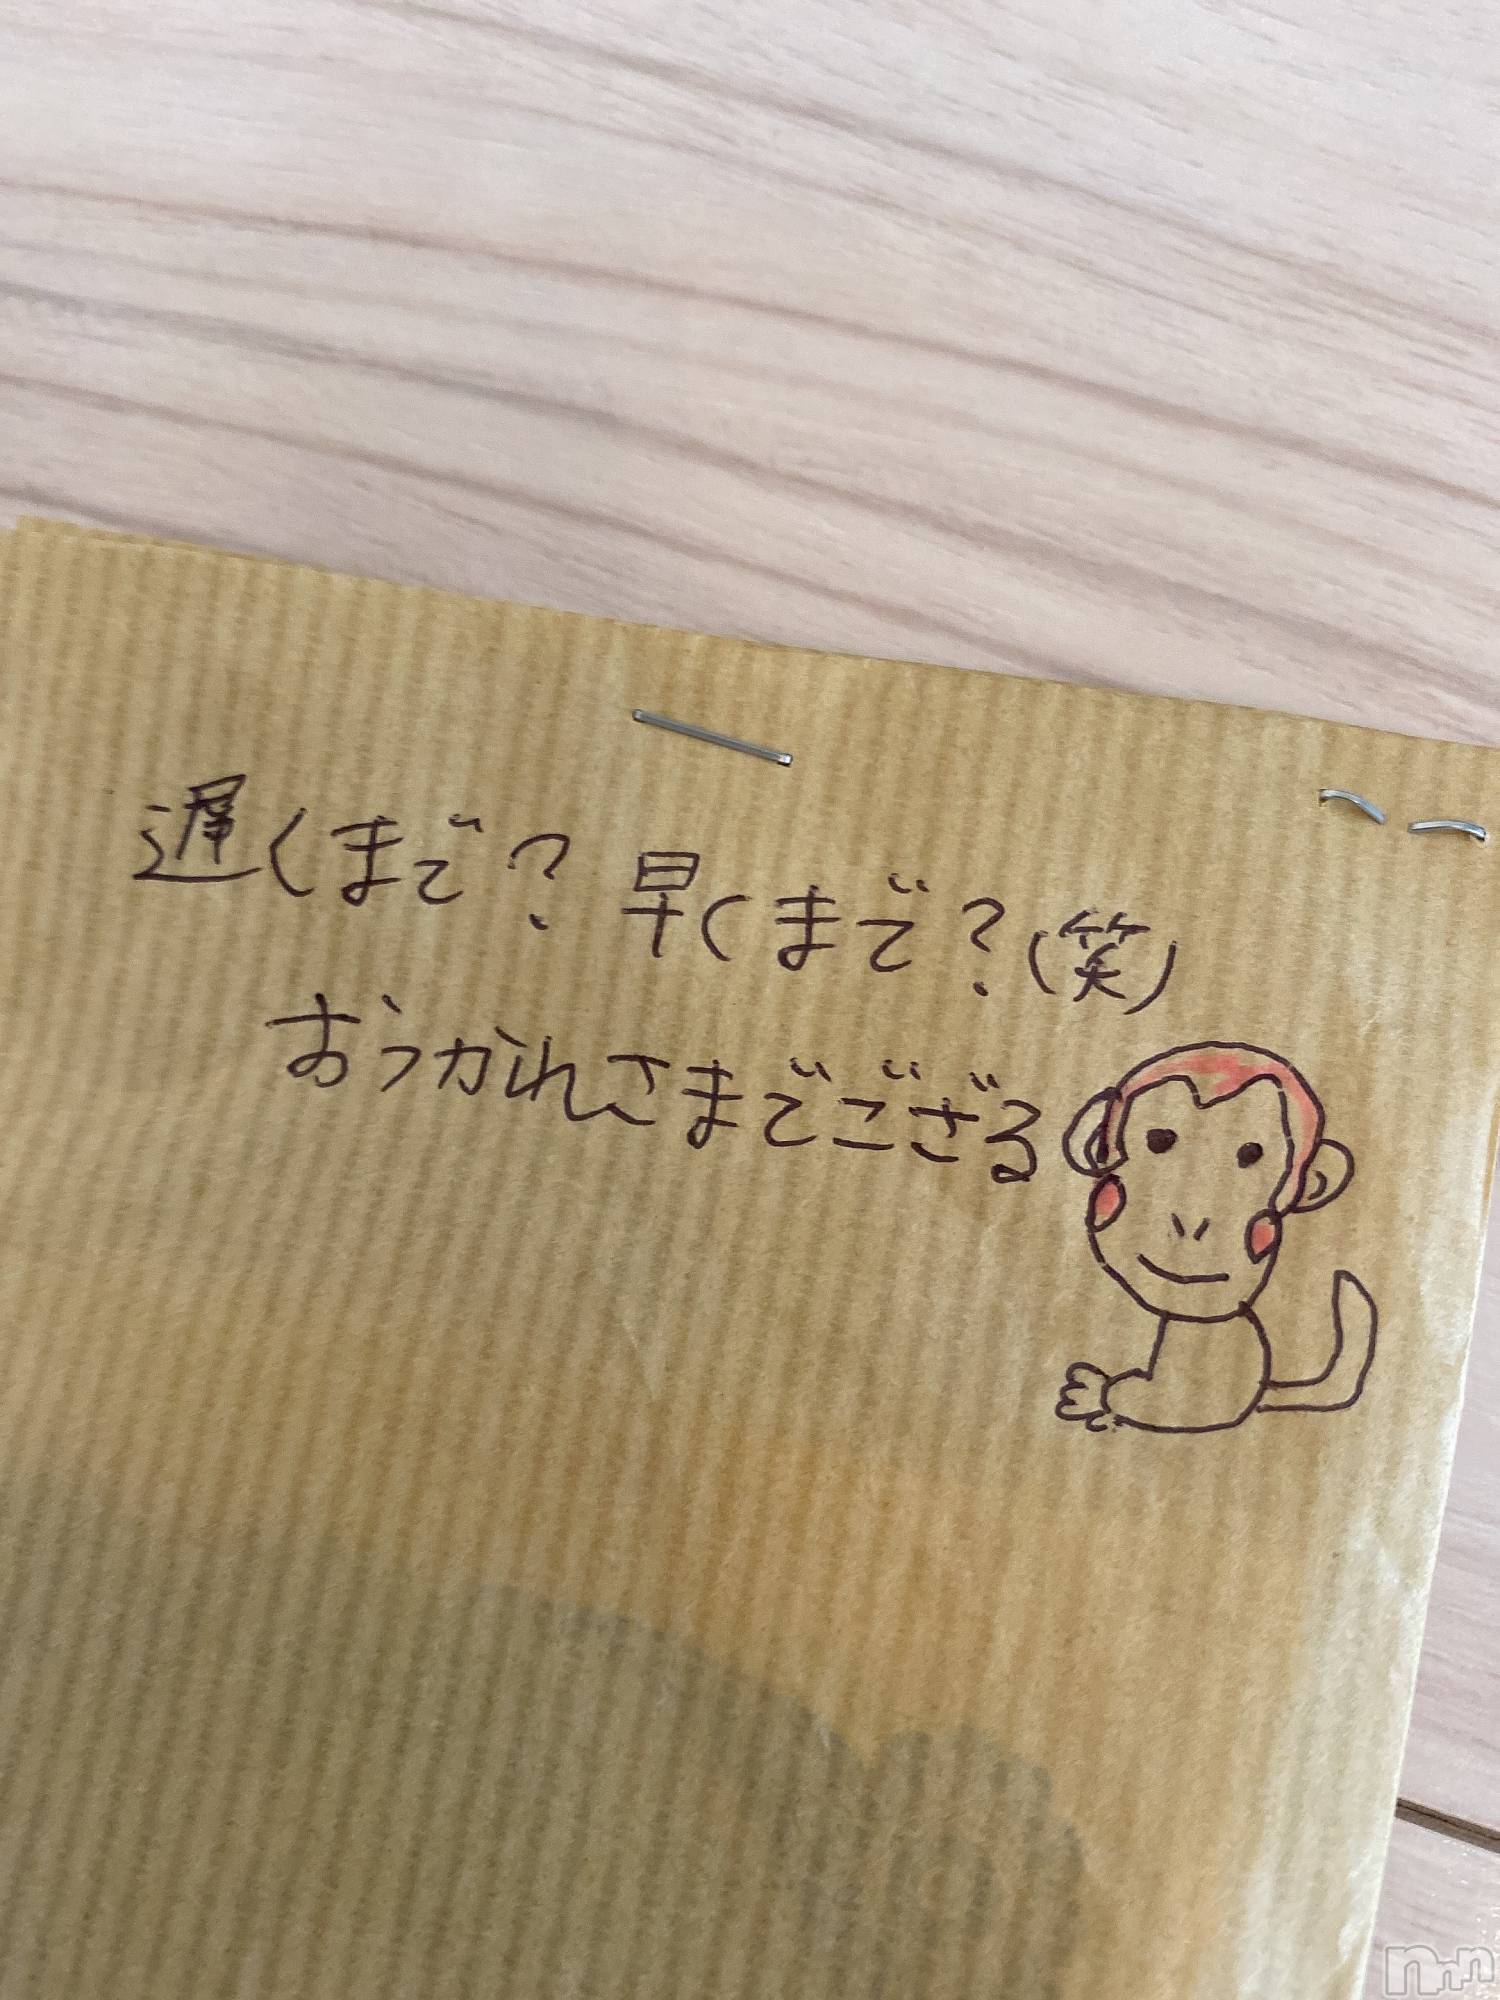 遅くまで？早くまで？(笑)
おつかれさまでござる
nnn